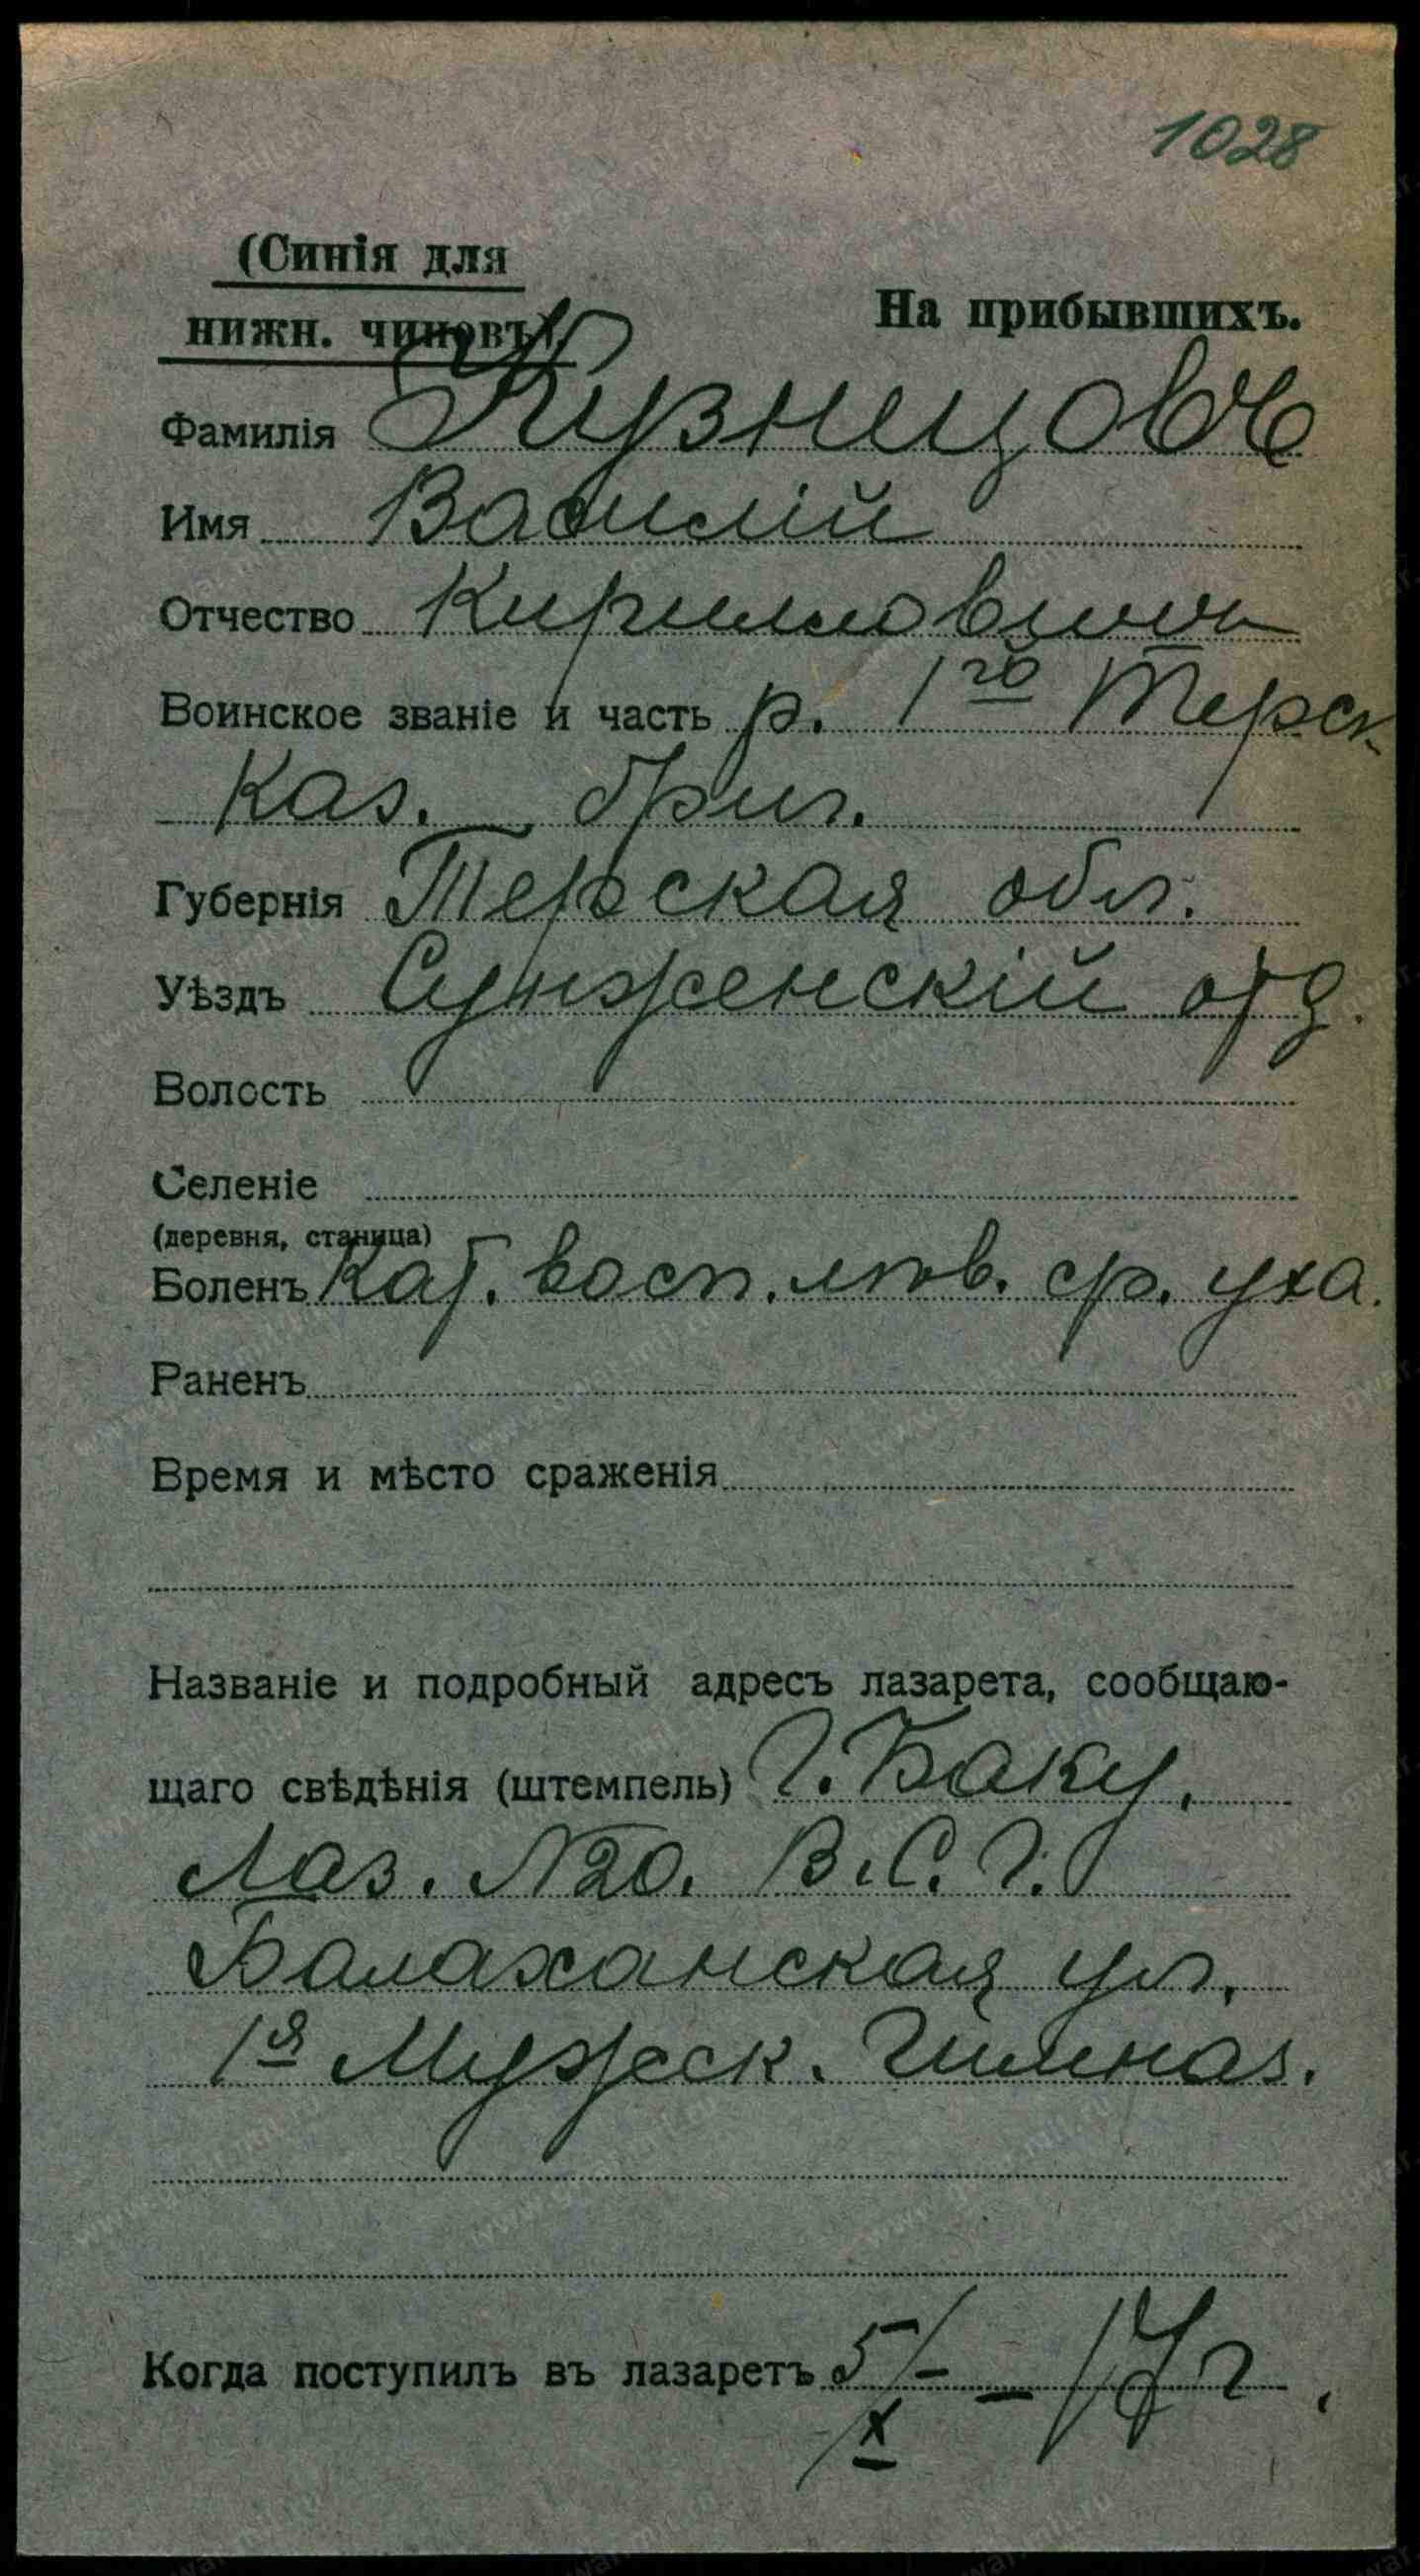 1028
(Синія для
нижн. чиновъ)
На прибывшихъ.
Фамилія Кузнецовъ
Имя Василій
Отчество Кирилловичъ
Воинское званіе и часть р. 1го Терск.
Каз. бриг.
Губернія Терская обл.
Уѣздъ Сунженскій отд.
Волость
Селеніе
(деревня, станица)
Боленъ Кат. восп. лѣв. ср. уха.
Раненъ
Время и мѣсто сраженія
Названіе и подробный адресъ лазарета, сообщаю-
щаго свѣдѣнія (штемпель) г. Баку,
Лаз. №20. В. С. Г.
Балаханская ул,
1я Мужеск. Гимназ.
Когда поступилъ въ лазаретъ 5/X - 17 г.